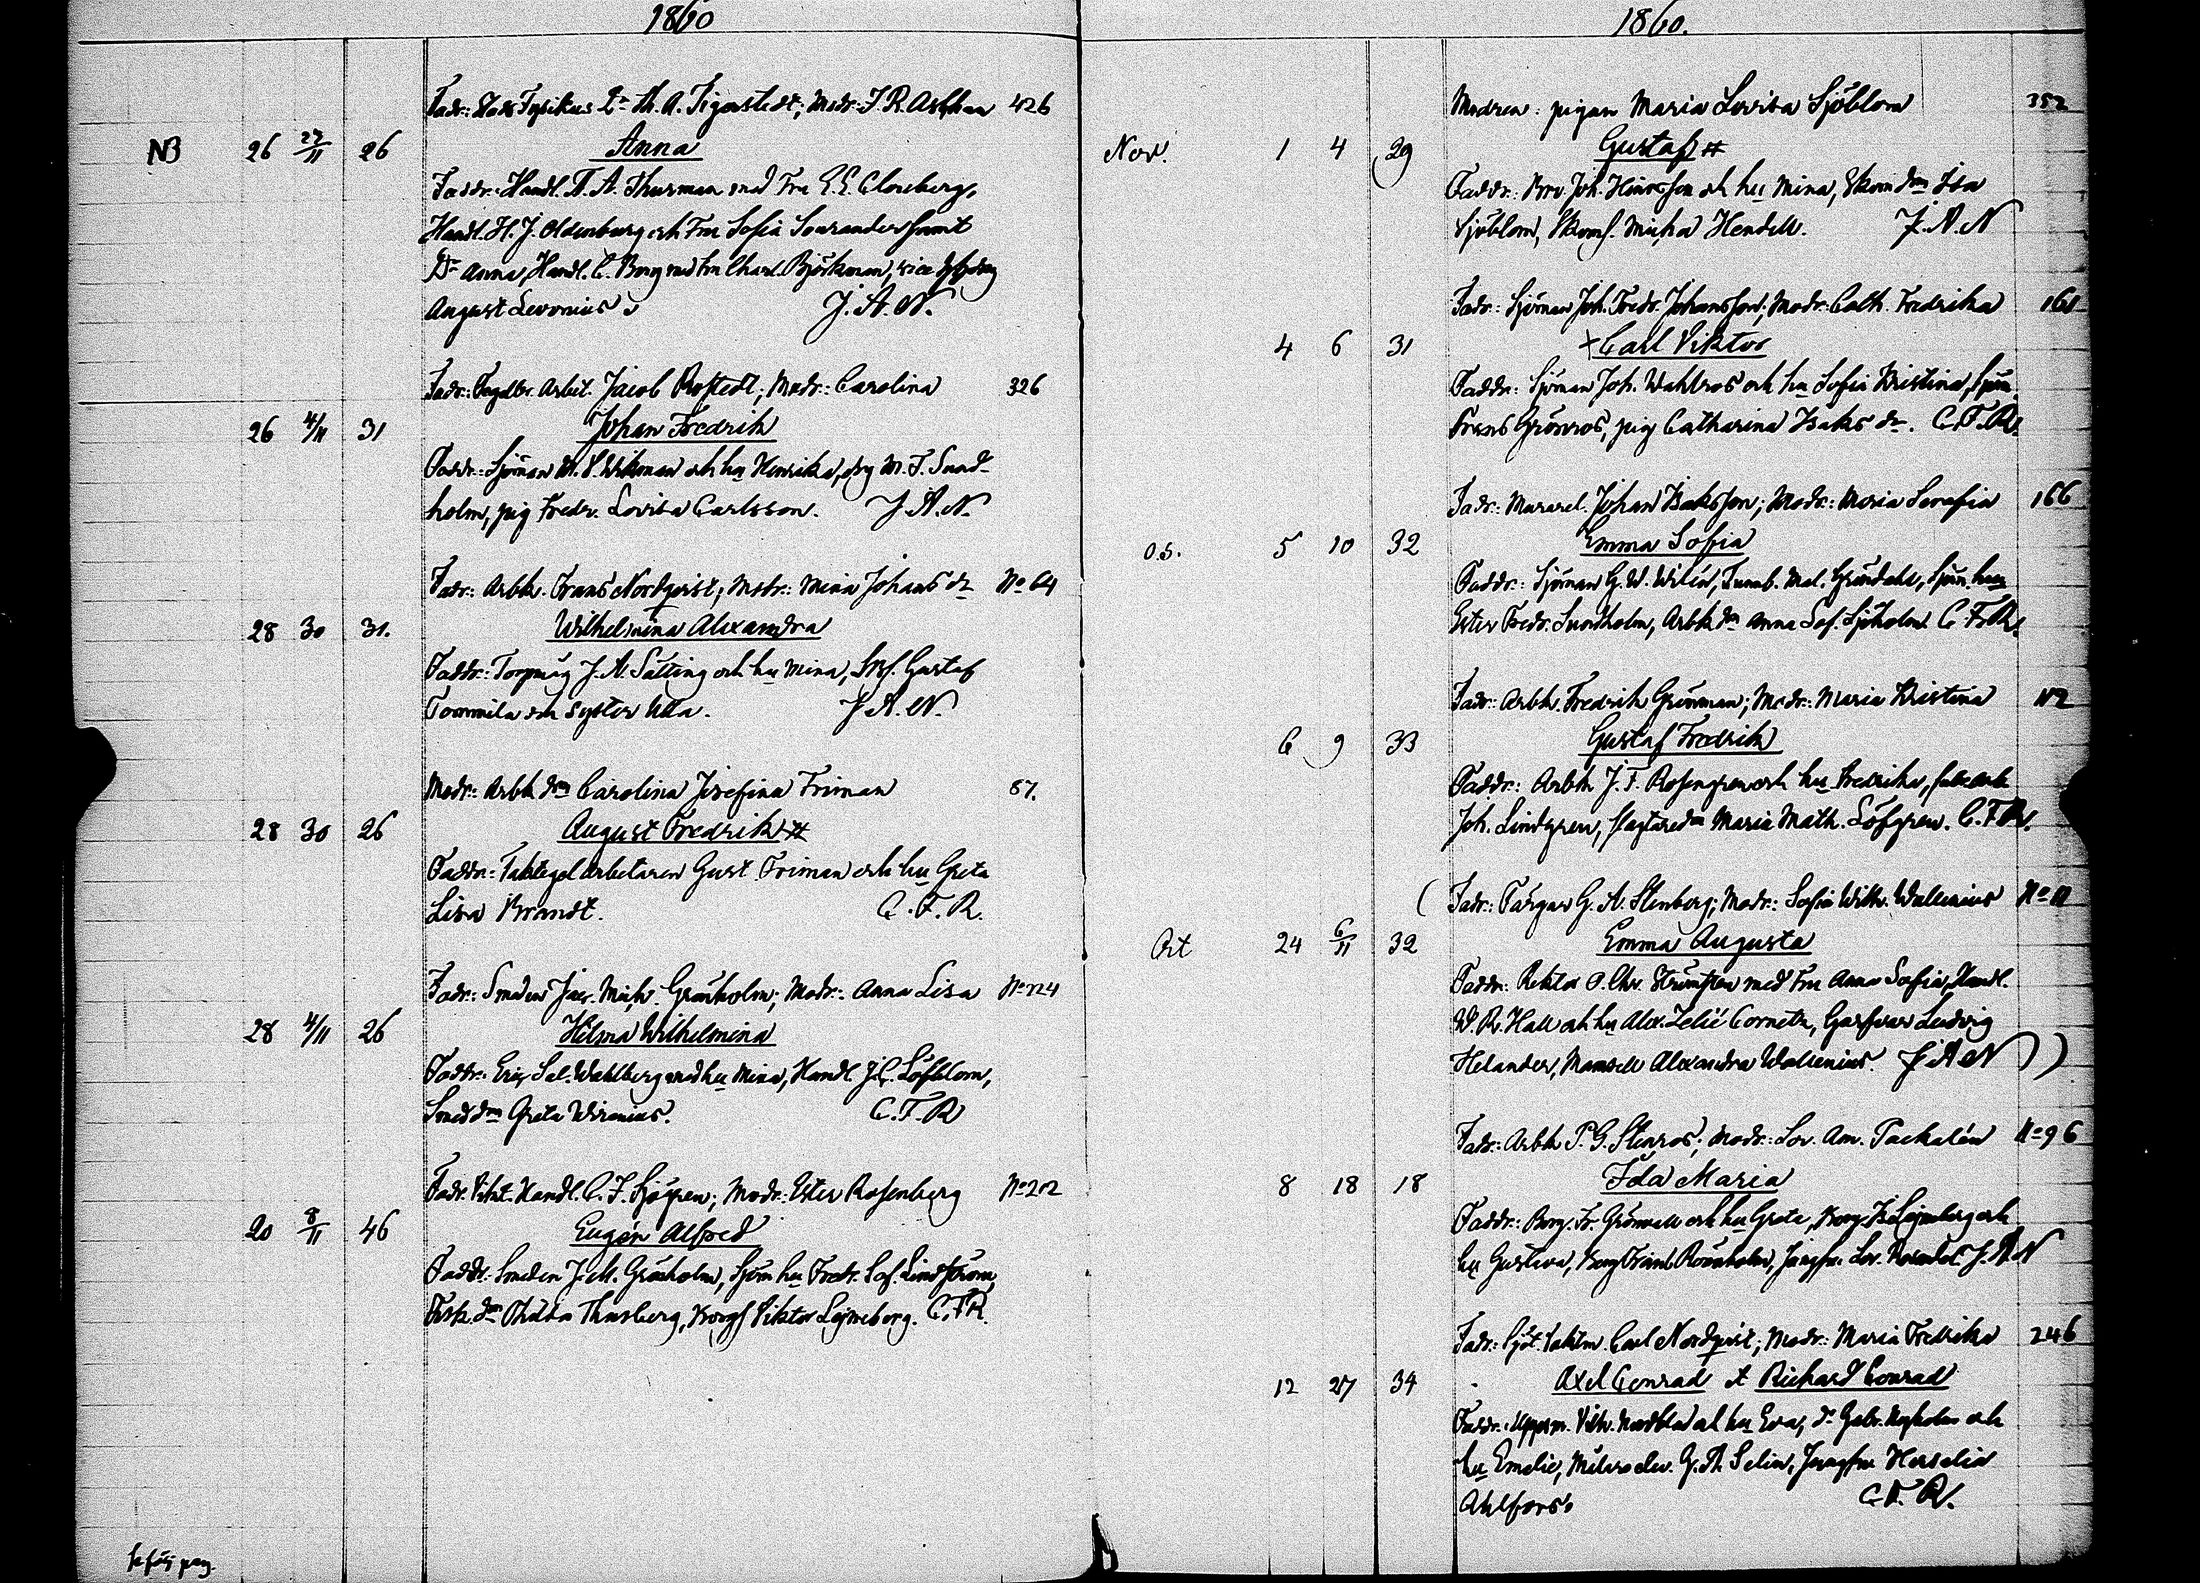 1860
Fadr: Stads Fysikus Dr Th. A. Tigerstedt; Modr: J. R. 426
NB 26 27/11 26 Anna
Faddr: Handl. A. Thurman med Fru E. E. Clouberg,
Handl. H. J. Oldenburg och Fru Sofia Sourander samt
Dr Anna, Handl. C. Borg med fru Charl. Björkman, vice
August Levonius J. A. N.
Fadr: Arbet. Jacob Rostedt; Modr: Carolina 326
26 4/11 31 Johan Fredrik
Faddr: Sjöman Wikman och hu Henrika, M. F. Sund-
holm, pig Fredr. Lovisa Carlsson. J. A. N.
Fadr: Arbk. Frans Nordqvist; Modr: Mina Johans dr No 64
28 30 31. Wilhelmina Alexandra
Faddr: J. A. Sälling och hu Mina, Gustaf
Tommila och syster Ulla. J. A. N.
Modr: Arbk dr Carolina Josefina Friman 87.
28 30 26 August Fredrik #
Faddr: Taktegel arbetaren Gust. Friman och hu Greta
Lisa Brandt. C. F. R.
Fadr: Smeden Jac. Mich. Grönholm; Modr: Anna Lisa No 124
28 4/11 26 Hilma Wilhelmina
Faddr: Sal. Wahlberg med hu Mina, Handl. J. C. Löfblom,
Smeds dr Greta Wirenius. C. F. R
Fadr: Handl. C. F. Sjögren; Modr: Ester Rosenberg No 202
20 8/11 46 Eugén Alfred
Faddr: Smeden J. M. Grönholm, Sjöm hu Fredr. Sof. Lindström,
dr Thilda Thusberg, Viktor Lejmeberg. C. F. R.
se följ pag.
1860.
Modren: pigan Maria Lovisa Sjöblom 352
Nov. 1 4 29 Gustaf #
Faddr: Joh. Hinrsson och hu Mina, Skom dr Ida
Sjöblom, Micha Hendell. J. A. N
Fadr: Sjöman Joh. Fredr. Johansson; Modr: Cath. Fredrika 161
4 6 31 + Carl Viktor
Faddr: Sjöman Joh. Wahlros och hu Sofia Kristina, Sjöm.
Frans Grönros, pig Catharina Isaks dr. C. F. R.
Fadr: Murarel. Johan Isaksson; Modr: Maria Serafia 166
o.s. 5 10 32 Emma Sofia
Faddr: Sjöman G. W. Wilén, Tunnb. Mal. Gröndahl, Sjöm. hu
Ester Fredr. Sundholm, Arbk dr Anna Sof. Sjöholm. C. F. R.
Fadr: Arbk. Fredrik Grönman; Modr: Maria Kristina 112
6 9 33 Gustaf Fredrik
Faddr: Arbk J. F. Rosengren och hu Fredrika,
Joh. Lindgren, slagtare dr Maria Math. Löfgren. C. F. R.
( Fadr: Färgar G. A. Stenberg; Modr: Sofia Wilh. Wallenius No 11
Oct 24 6/11 32 Emma Augusta
Faddr: Rektor O. Chr. Strömsten med Fru Anna Sofia, Handl.
W. R. Hall och hu Alex. Zelié Cornetz, Garfvar Ludvig
Helander, Mamsell Alexandra Wallenius. J. A. N ))
Fadr: Arbk P. G. Stenros; Modr: Lov. Am. Packalén No 96
8 18 18 Ida Maria
Faddr: Borg. Fr. Grönvall och hu Greta, Lejmberg och
hu Gustava, Borg Rönnholm, Jungfru Lov. J. A. N
Fadr: Carl Nordqvist; Modr: Maria Fredrika 246
12 27 34 Axel Conrad et Richard Conrad
Faddr: Uppsm. Vilh. Nordblad och hu Eva, dr Gabr. Nyholm och
hu Emelie, G. A. Selin, Jungfru Herselia
Ahlfors. C. F. R.